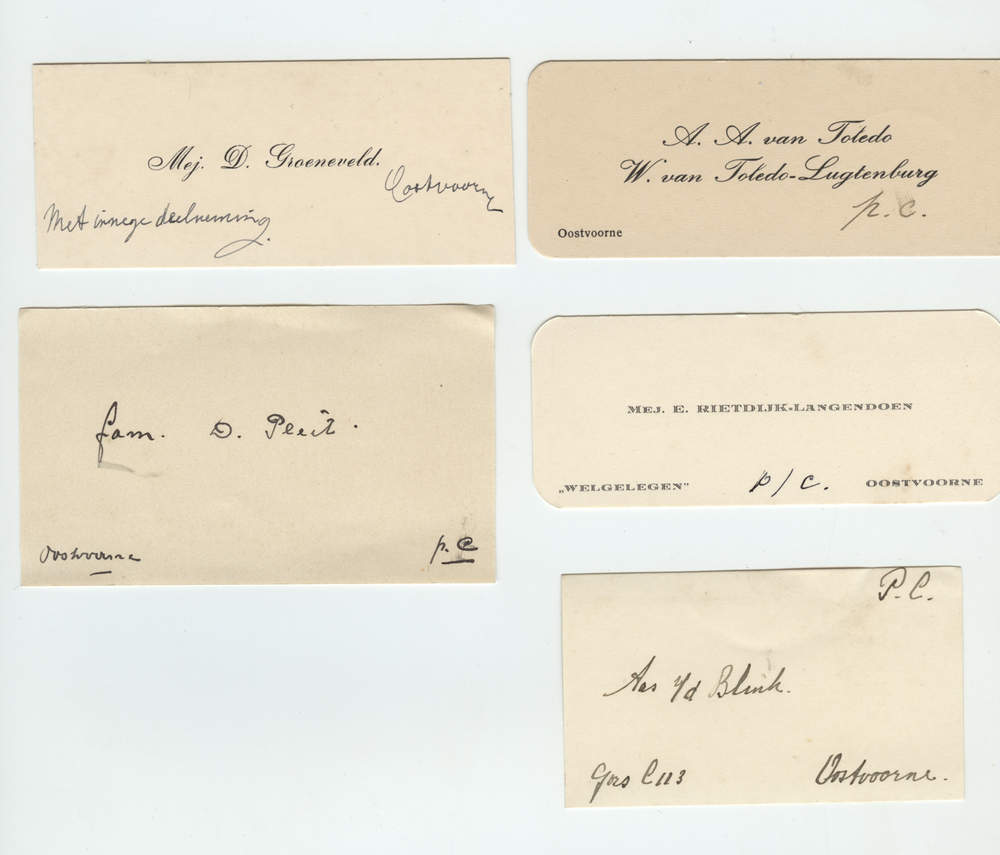 Mej. D. Groeneveld.
Oostvoorne
Met innege deelneming.
A. A. van Toledo
W. van Toledo-Lugtenburg
p. c.
Oostvoorne
fam. D. Pleit.
Oostvoorne
p. c
MEJ. E. RIETDIJK-LANGENDOEN
„WELGELEGEN" p/c. OOSTVOORNE
P. C.
Aas v/d Blink.
Gors C 113 Oostvoorne.